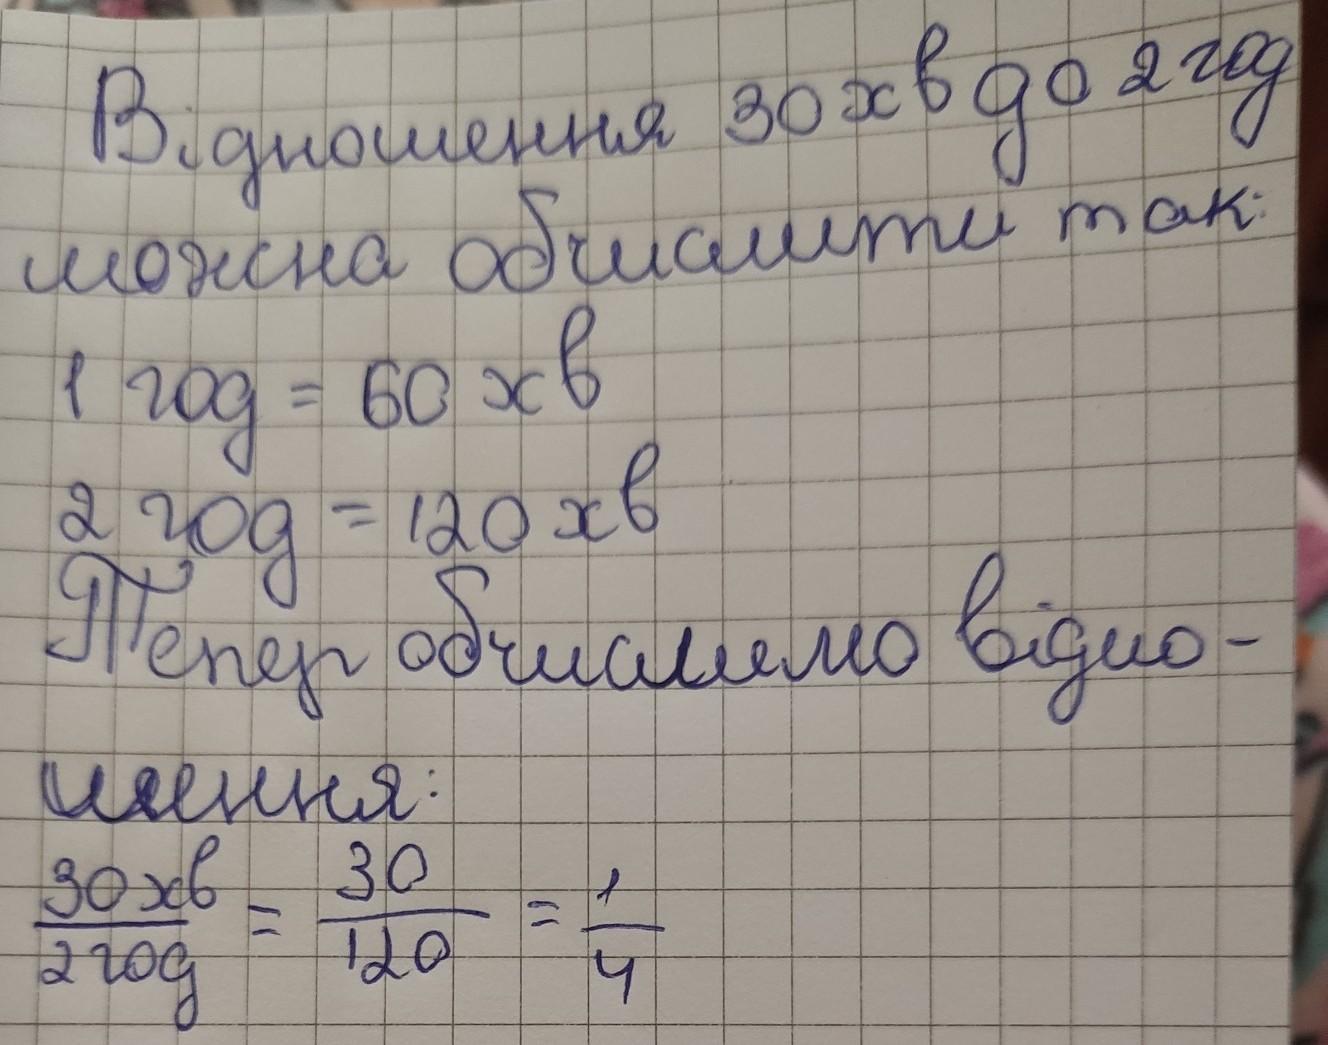 Відношення 30 хв до 2 год
можна обчислити так:
1 год = 60 хв
2 год = 120 хв
Тепер обчислимо відно-
шення:
30 хв / 2 год = 30 / 120 = 1 / 4